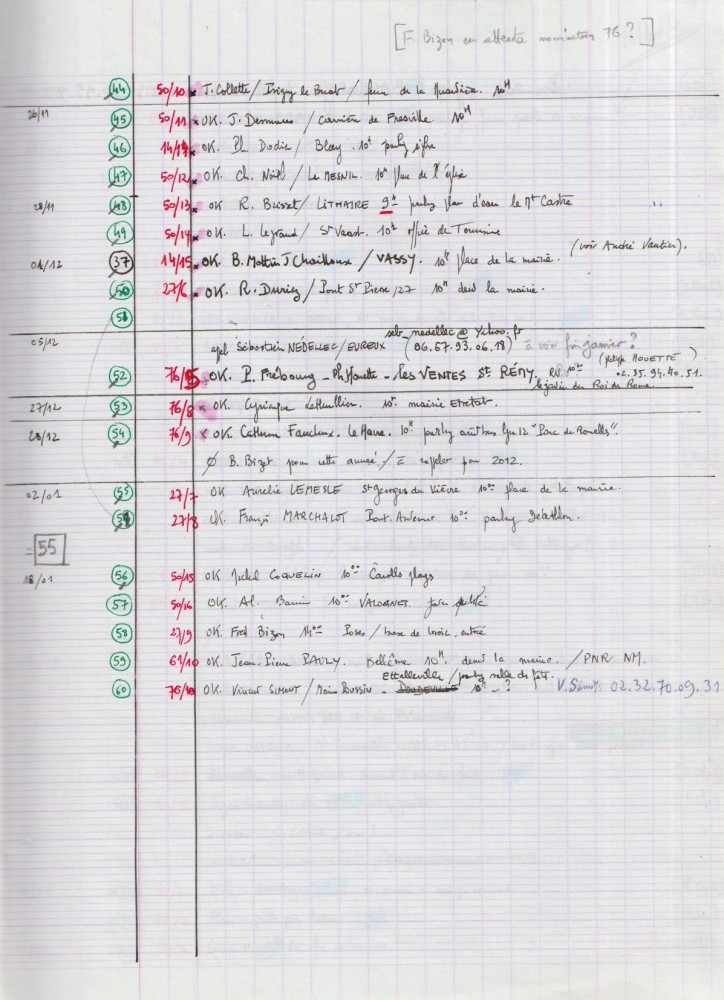 [F. Bizon en attente nomination 76 ?]
44 50/10 x J. Collette / Isigny le Buat / de la 10H
26/11 45 50/11 x OK. J. Desmares / carrière de Fresville 10H
46 14/14 x OK. Ph. Dodier / Blay. 10H parking église
47 50/12 x OK. Ch. Noël / Le MESNIL. 10H place de l'église
28/11 48 50/13 x OK R. Bisset / LITHAIRE 9H parking plan d'eau le Mt Castre
49 50/14 x OK. L. Legrand / St Vaast. 10H office de Tourisme
(voir André Vautier).
04/12 37 14/15 x OK. B. Mottin J Chailloux / VASSY. 10H place de la mairie.
50 27/6 x OK. R. / Pont St Pierre / 27 10H devt la mairie.
51
seb_nedellec@yahoo.fr
05/12 apel Sébastien NÉDELLEC / EVREUX (06.67.93.06.18) à voir fin janvier ?
(Philippe HOUETTE)
52 76/5 x OK. P. Frébourg - Ph. Houette - les VENTES St RÉMY, RV 10H 02.35.94.40.51.
du Roi de Rome
27/12 53 76/8 x OK. Cyriaque Lethuillier. 10H mairie Etretat.
28/12 54 76/9 x OK. Catherine Faucheux. Le Havre. 10H parking bus lgn 12 "Parc de Rouelles".
Ø B. Bizet pour cette année / à rappeler pour 2012.
02/01 55 27/7 OK Aurélie LEMESLE St Georges du Vièvre 10H place de la mairie.
27/8 OK. François MARCHALOT Pont. Audemer 10H parking Décathlon.
= 55
18/01 56 50/15 OK Michel COQUELIN 10H Carolles plage
57 50/16 OK. Al. 10H VALOGNES. gare
58 27/9 OK. Fred Bizon 14H Poses / base de loisir. entrée
59 61/10 OK. Jean-Pierre PAULY. Bellême 10H. devt la mairie. / PNR NM.
Ettalleville / parking salle des fêtes.
60 76/10 OK. Vincent SIMONT / Bussin - DOUDEVILLE 10H - ? V. Simont: 02.32.70.09.31